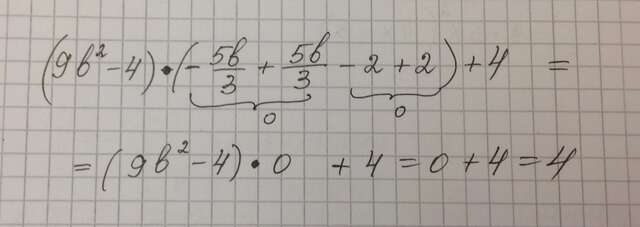 (9b² − 4) • (− 5b/3 + 5b/3 − 2 + 2) + 4 =
0 0
= (9b² − 4) • 0 + 4 = 0 + 4 = 4